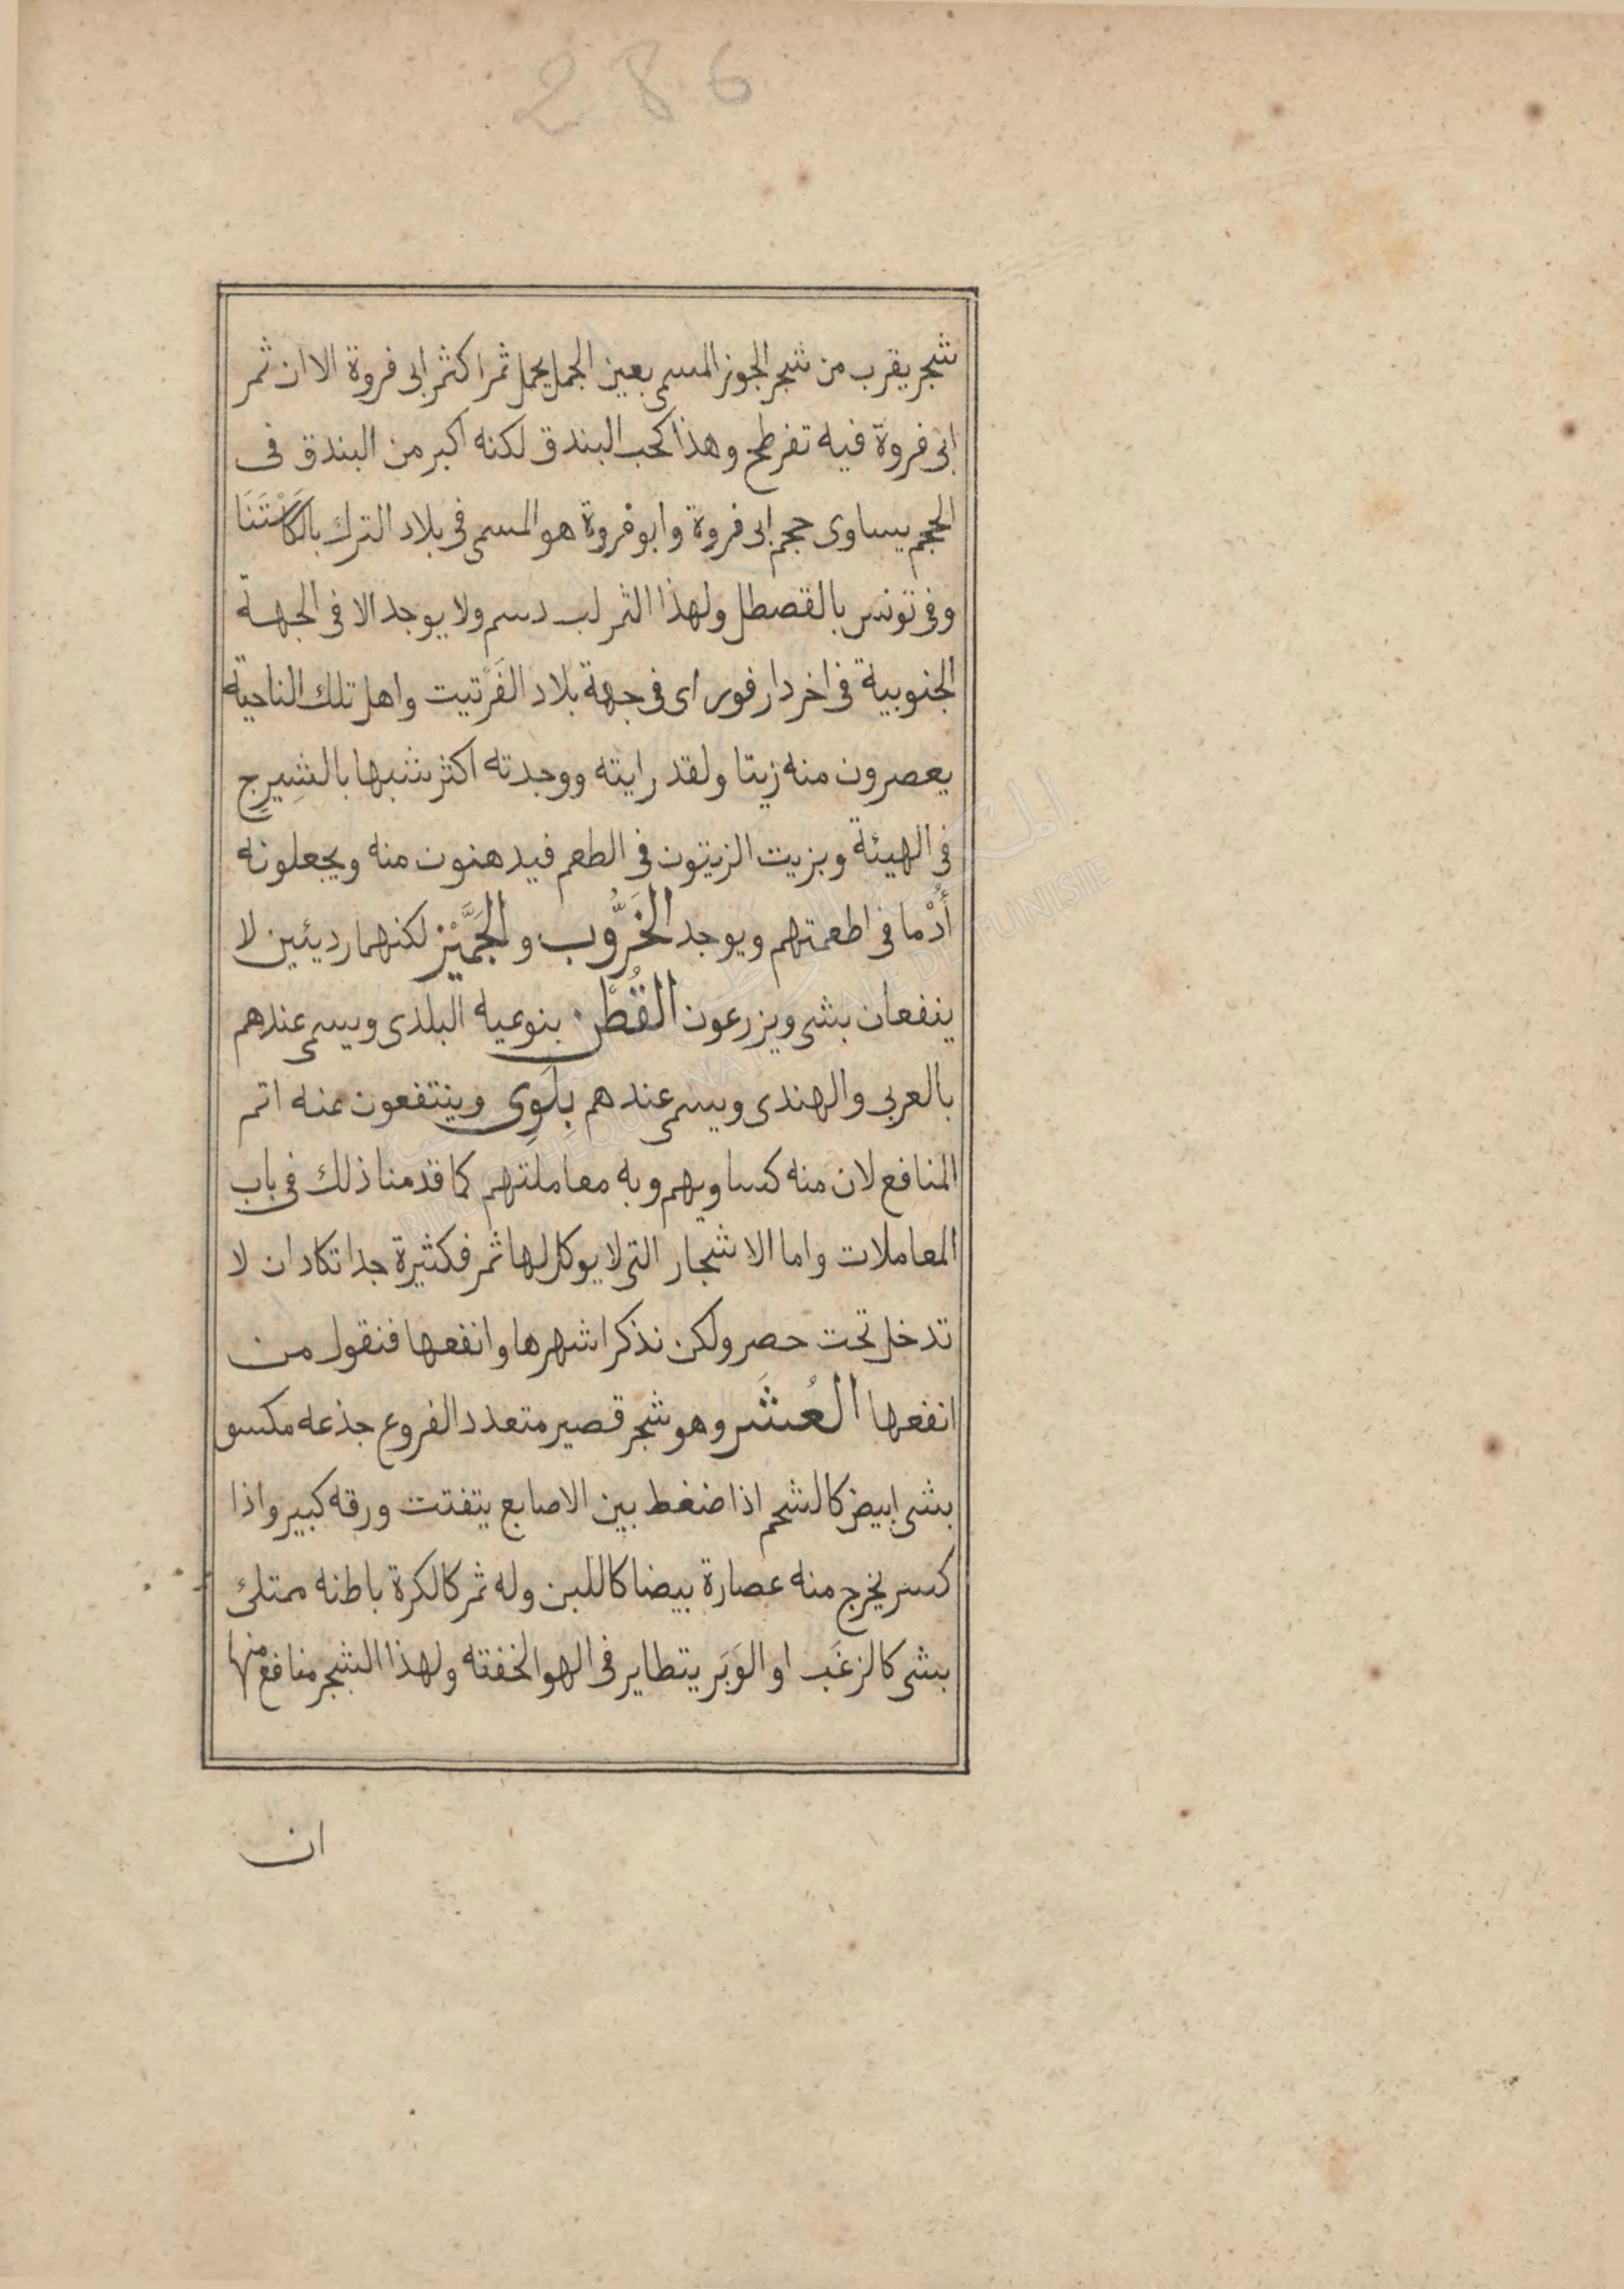 286
شجر يقرب من شجر الجوز المسمى بعين الجمل يحمل ثمرا كثمر ابى فروة الا ان ثمر
ابى فروة فيه تفرطح وهذا كحب البندق لكنه اكبر من البندق فى
الحجم يساوى حجم ابى فروة وابو فروة هو المسمى فى بلاد الترك بالكَاسْتَنَا
وفى تونس بالقصطل ولهذا الثمر لب دسم ولا يوجد الا فى الجهة
الجنوبية فى اخر دارفور اى فى جهة بلاد الفَرْتيت واهل تلك الناحية
يعصرون منه زيتا ولقد رايته ووجدته اكثر شبها بالشِيرِج
فى الهيئة وبزيت الزيتون فى الطعم فيدهنون منه ويجعلونه
أُدْما فى اطعمتهم ويوجد الخَرُّوب والجَمَّيْز لكنهما رديئين لا
ينفعان بشى ويزرعون القُطْن بنوعيه البلدى ويسمى عندهم
بالعربى والهندى ويسمى عندهم بلَوِى وينتفعون منه اتم
المنافع لان منه كساويهم وبه معاملتهم كما قدمنا ذلك فى باب
المعاملات واما الاشجار التى لا يوكل لها ثمر فكثيرة جدا تكاد ان لا
تدخل تحت حصر ولكن نذكر اشهرها وانفعها فنقول من
انفعها العُشَر وهو شجر قصير متعدد الفروع جذعه مكسو
بشى ابيض كالشحم اذا ضغط بين الاصابع يتفتت ورقه كبير واذا
كسر يخرج منه عصارة بيضا كاللبن وله ثمر كالكرة باطنه ممتلئ
بشى كالزغَب او الوَبَر يتطاير فى الهوا لخفته ولهذا الشجر منافع منها
ان